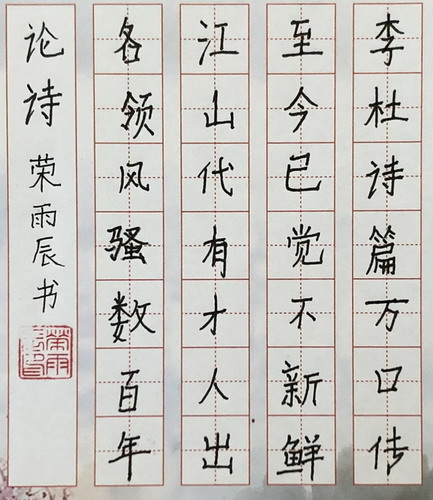 李杜诗篇万口传
至今已觉不新鲜
江山代有才人出
各领风骚数百年
论诗 荣雨辰书